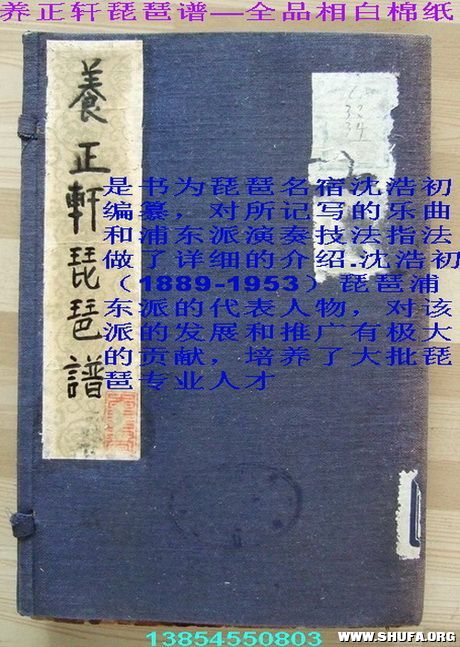 养正轩琵琶谱—全品相白棉纸
養正軒琵琶譜
是书为琵琶名宿沈浩初
编纂，对所记写的乐曲
和浦东派演奏技法指法
做了详细的介绍.沈浩初
（1889-1953）琵琶浦
东派的代表人物，对该
派的发展和推广有极大
的贡献，培养了大批琵
琶专业人才
13854550803
WWW.SHUFA.ORG